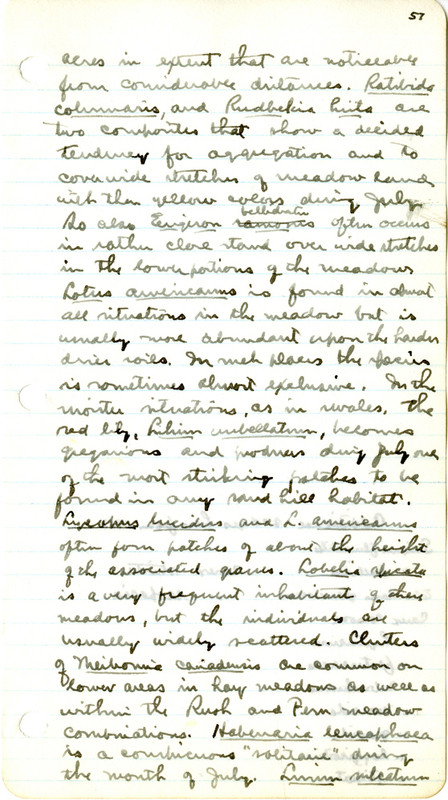 57
acres in extent that are noticeable
from considerable distances. Ratibida
columnaris, and Rudbekia hirta are
two composites that show a decided
tendency for aggregation and to
cover wide stretches of meadow land
with their yellow colors during July.
So also Erigeron ramosus often occurs
in rather close stand over wide stretches
in the lower portions of the meadows
Lotus americanus is found in almost
all situations in the meadow but is
usually more abundant upon the harder
drier soils. In such places the species
is sometimes almost exclusive. In the
moister situations, as in swales, the
red lily, Lilium umbellatum, becomes
gregarious and produces during July one
of the most striking patches to be
found in any sand hill habitat.
Lycopus lucidus and L. americanus
often form patches of about the height
of the associated grasses. Lobelia spicata
is a very frequent inhabitant of these
meadows, but the individuals are
usually widely scattered. Clusters
of Meibomia canadensis are common on
lower areas in hay meadows as well as
within the Rush and Fern meadow
combinations. Habenaria leucophaea
is a conspicuous "solitaire" during
the month of July. Linum sulcatum